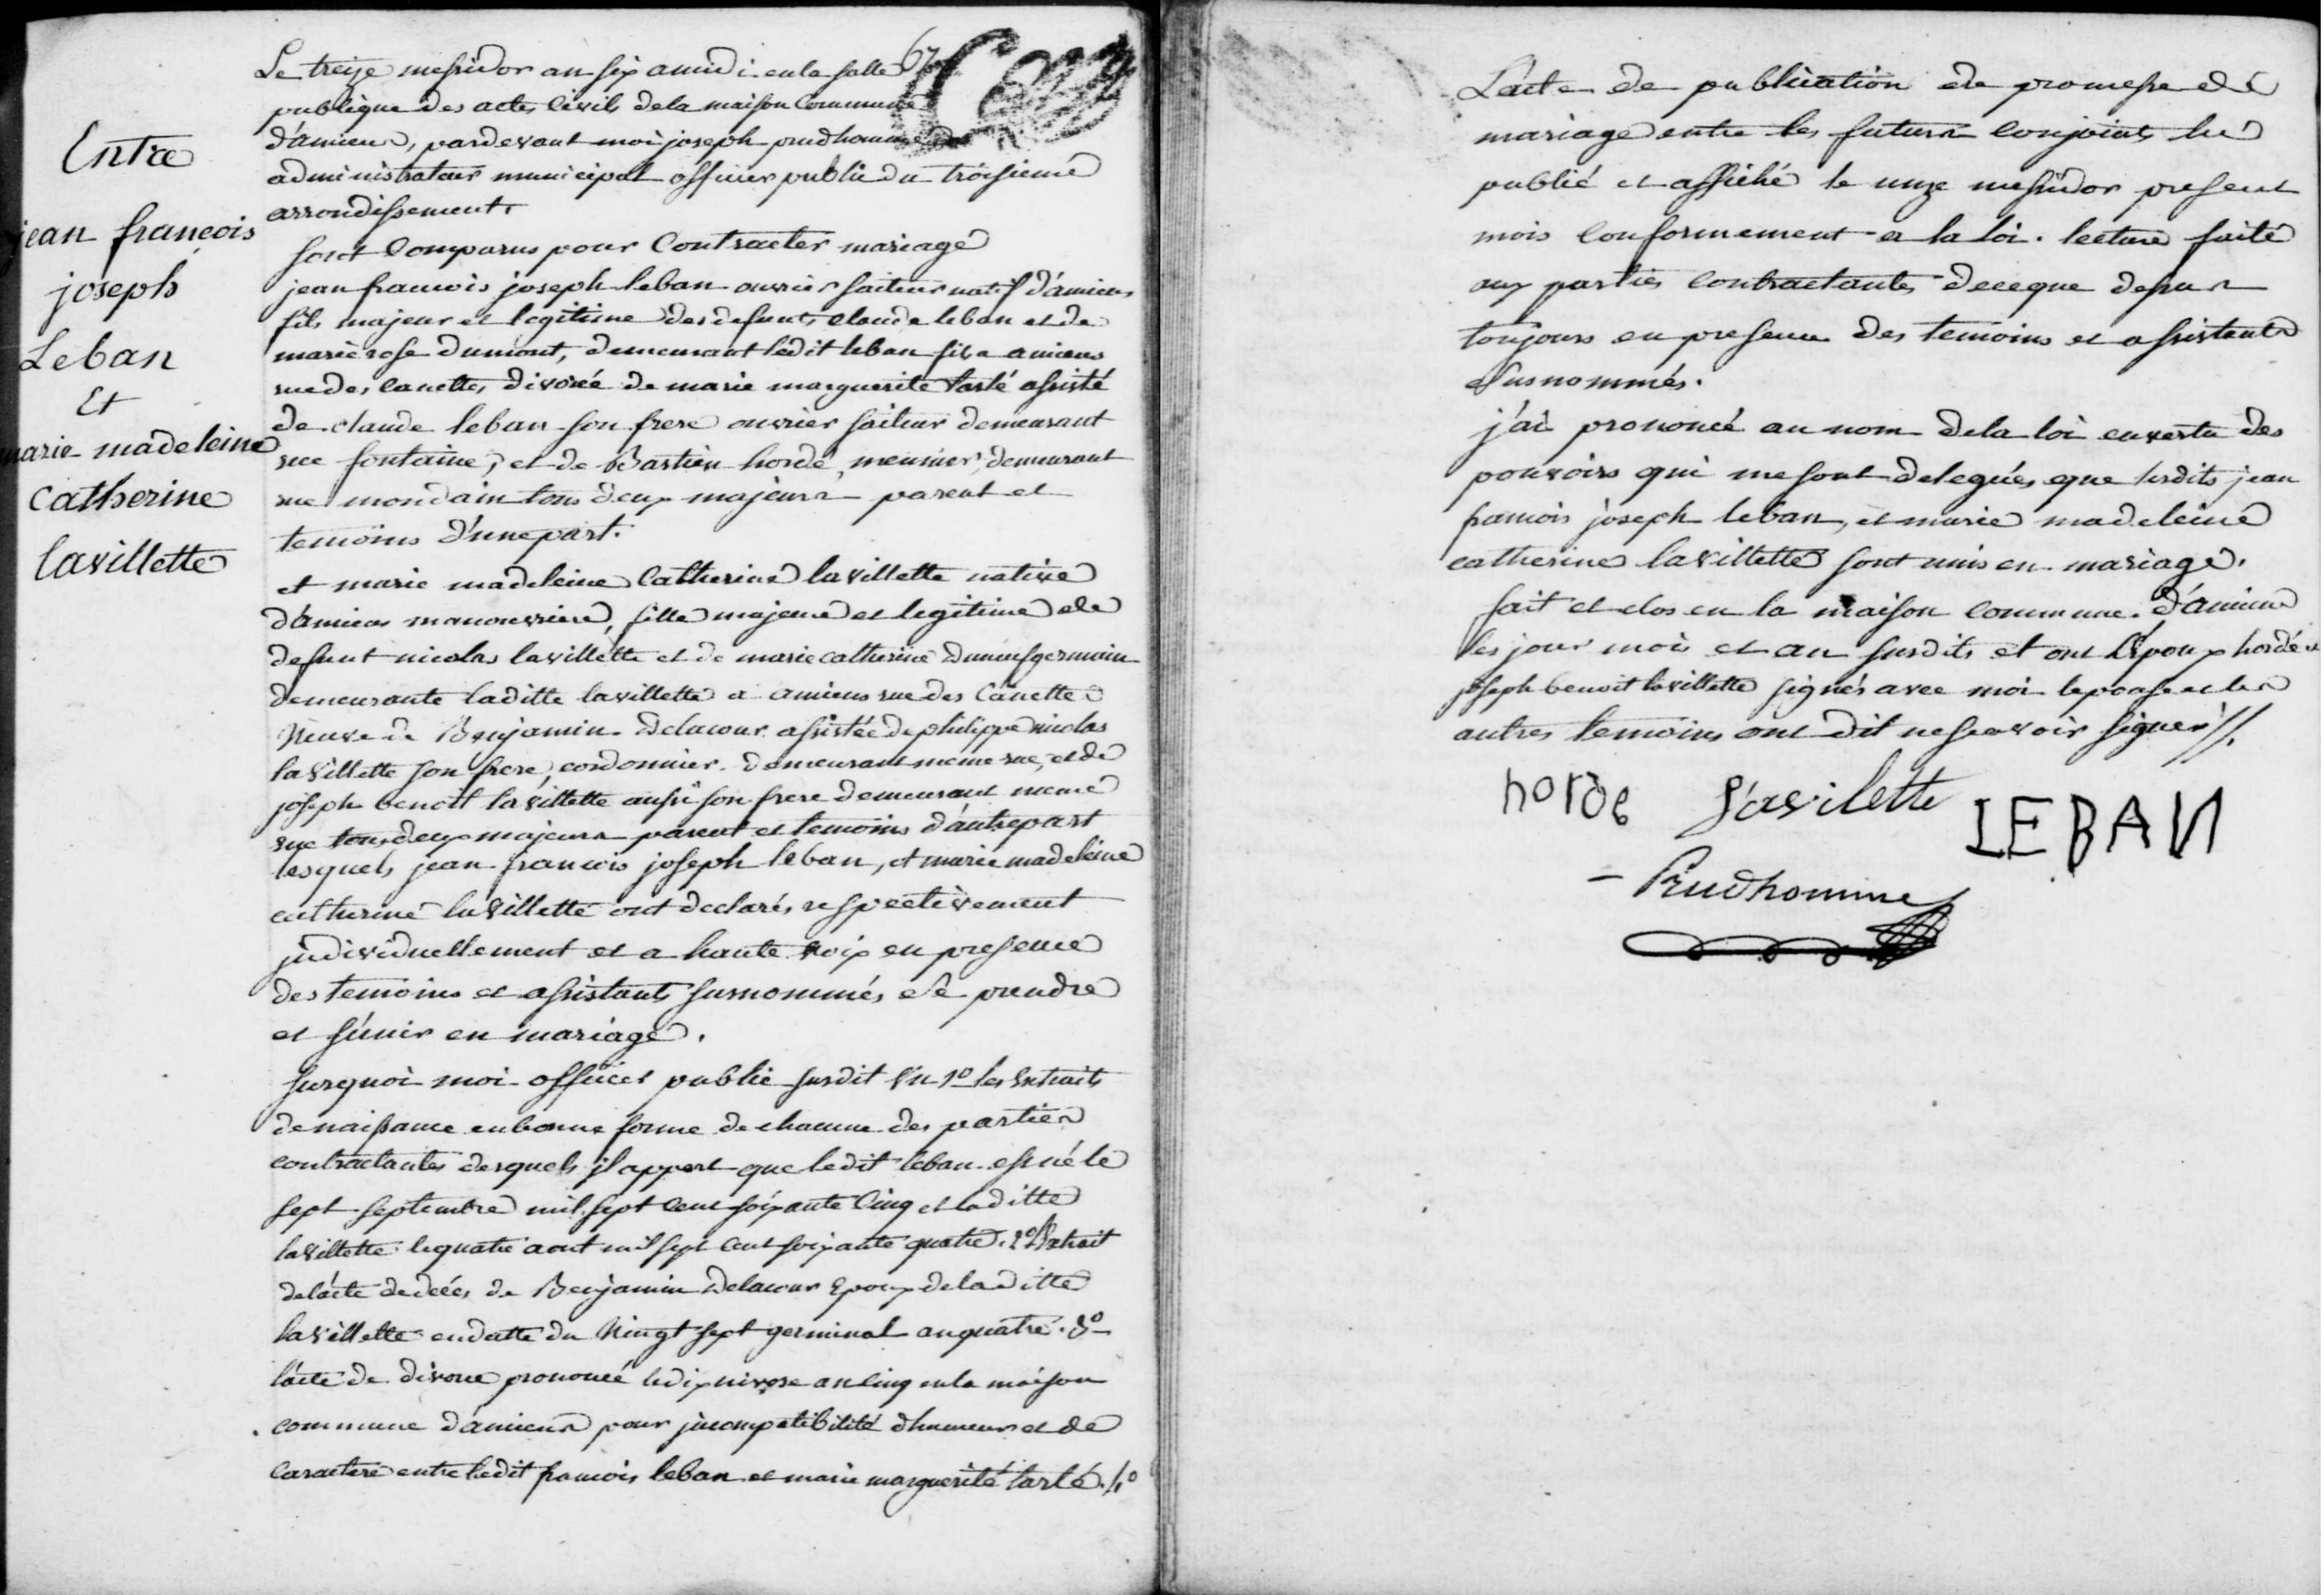 Entre
jean françois
joseph
Leban
Et
marie madeleine
catherine
lavillette
67
Le treize messidor an six a midi en la salle
publique des actes civils de la maison commune
d'amiens, pardevant moi joseph prudhomme
administrateur municipal officier public du troisieme
arrondissement
sont comparus pour contracter mariage
jean francois joseph leban ouvrier saiteur natif d'amiens
fils majeur et legitime des defunts claude leban et de
marie rose dumont, demeurant ledit leban fils a amiens
rue des canettes divorcé de marie marguerite tarlé assisté
de claude leban son frere ouvrier saiteur demeurant
rue fontaine, et de Bastien hordé meunier, demeurant
rue mondain tous deux majeurs parent et
temoins d'une part.
et marie madeleine catherine lavillette native
d'amiens manouvriere, fille majeure et legitime de
defunt nicolas lavillette et de marie catherine duneufgermain
demeurante laditte lavillette a amiens rue des Canettes
Veuve de Benjamin Delacour assistée de philippe nicolas
lavillette son frere, cordonnier demeurant meme rue, et de
joseph benoit lavillette aussi son frere demeurant meme
rue tous deux majeurs parent et temoins d'autre part
lesquels jean francois joseph leban, et marie madeleine
catherine lavillette ont declarés respectivement
individuellement et a haute voix en presence
des temoins et assistants surnommés de prendre
et s'unir en mariage.
surquoi moi officier public susdit vu 1º les extraits
de naissance en bonne forme de chacune des parties
contractantes desquels il appert que ledit leban est né le
sept septembre mil sept cent soixante cinq et laditte
lavillette le quatre aout mil sept cent soixante quatre. 2º l'extrait
de l'acte de décès de Benjamin Delacour Epoux de laditte
lavillette en datte du Vingt sept germinal an quatre. 3º
l'acte de divorce prononcé le dix nivose an cinq en la maison
commune d'amiens pour jncompatibilité d'humeur et de
caractere entre ledit francois leban et marie marguerite tarlé. 4º
L'acte de publication de promesse de
mariage entre les futurs conjoints lu
publié et affiché le unze messidor present
mois conformement a la loi. lecture faite
aux parties contractantes de ce que dessus
toujours en presence des temoins et assistants
susnommés.
j'ai prononcé au nom de la loi en vertu des
pouvoirs qui me sont delegués que lesdits jean
francois joseph leban, et marie madeleine
catherine lavillette sont unis en mariage.
fait et clos en la maison commune d'amiens
les jour mois et an susdits et ont l'Epoux hordé et
joseph benoit lavillette signés avec moi l'epouse et les
autres temoins ont dit ne scavoir signer //.
horde lavilette LEBAN
Prudhomme